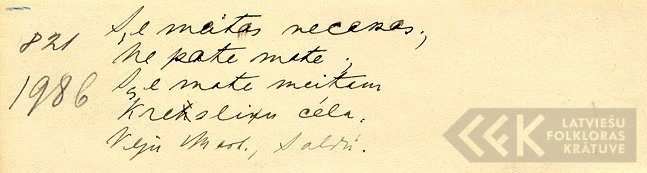 821
1986
S,e meitas necakas,
Ne pate mate;
S,e mate meitam
Krekslinu céla.
Veju Mast., Saldū.
LATVIEŠU
FOLKLORAS
KRĀTUVE